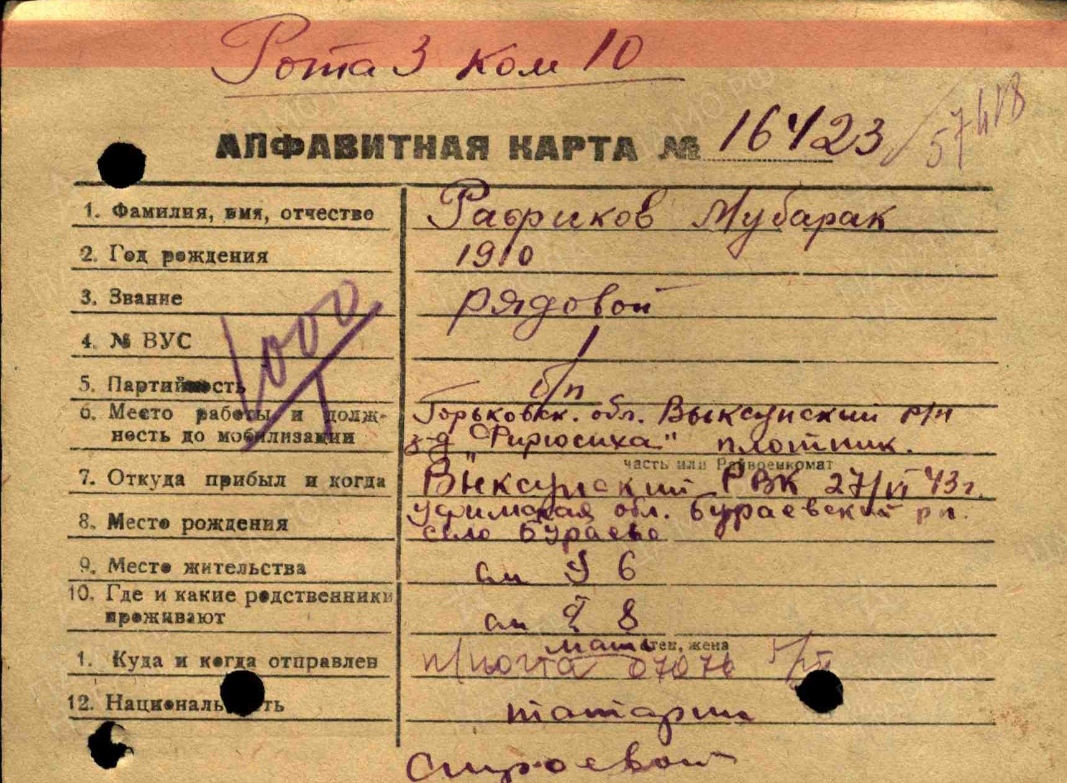 Рота 3 ком 10
АЛФАВИТНАЯ КАРТА № 16423 57418
1. Фамилия, имя, отчество Рафиков Мубарак
2. Год рождения 1910
3. Звание рядовой
4. № ВУС
1000
5. Партийность б/п
6. Место работы и долж- Горьковск. обл. Выксунский р/н
ность до мобилизации з-д плотник.
часть или Райвоенкомат
7. Откуда прибыл и когда Выксунский РВК 27/VI 43г.
8. Место рождения Уфимская обл. Бураевский рн.
село Бураево
9. Место жительства см § 6
10. Где и какие родственники
проживают см § 8
мать отец, жена
1. Куда и когда отправлен п/почта 07076
12. Национальность татарин
строевой